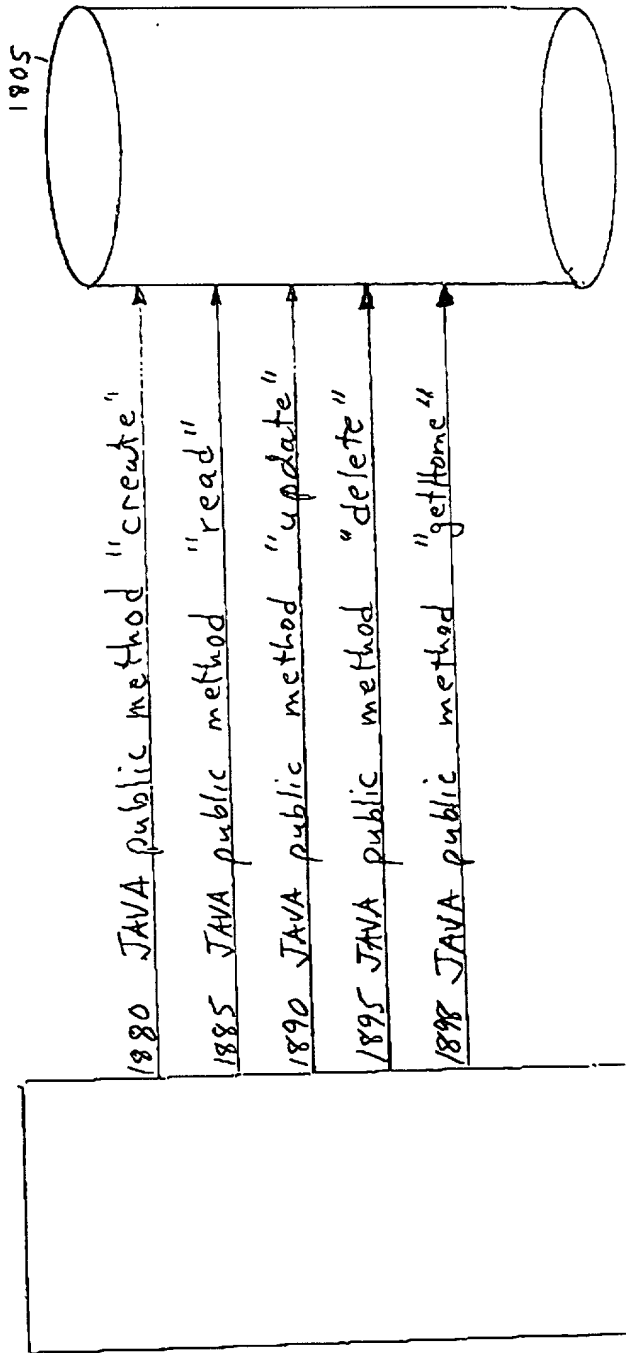 1805
1880 JAVA public method "create"
1885 JAVA public method "read"
1890 JAVA public method "update"
1895 JAVA public method "delete"
1898 JAVA public method "getHome"